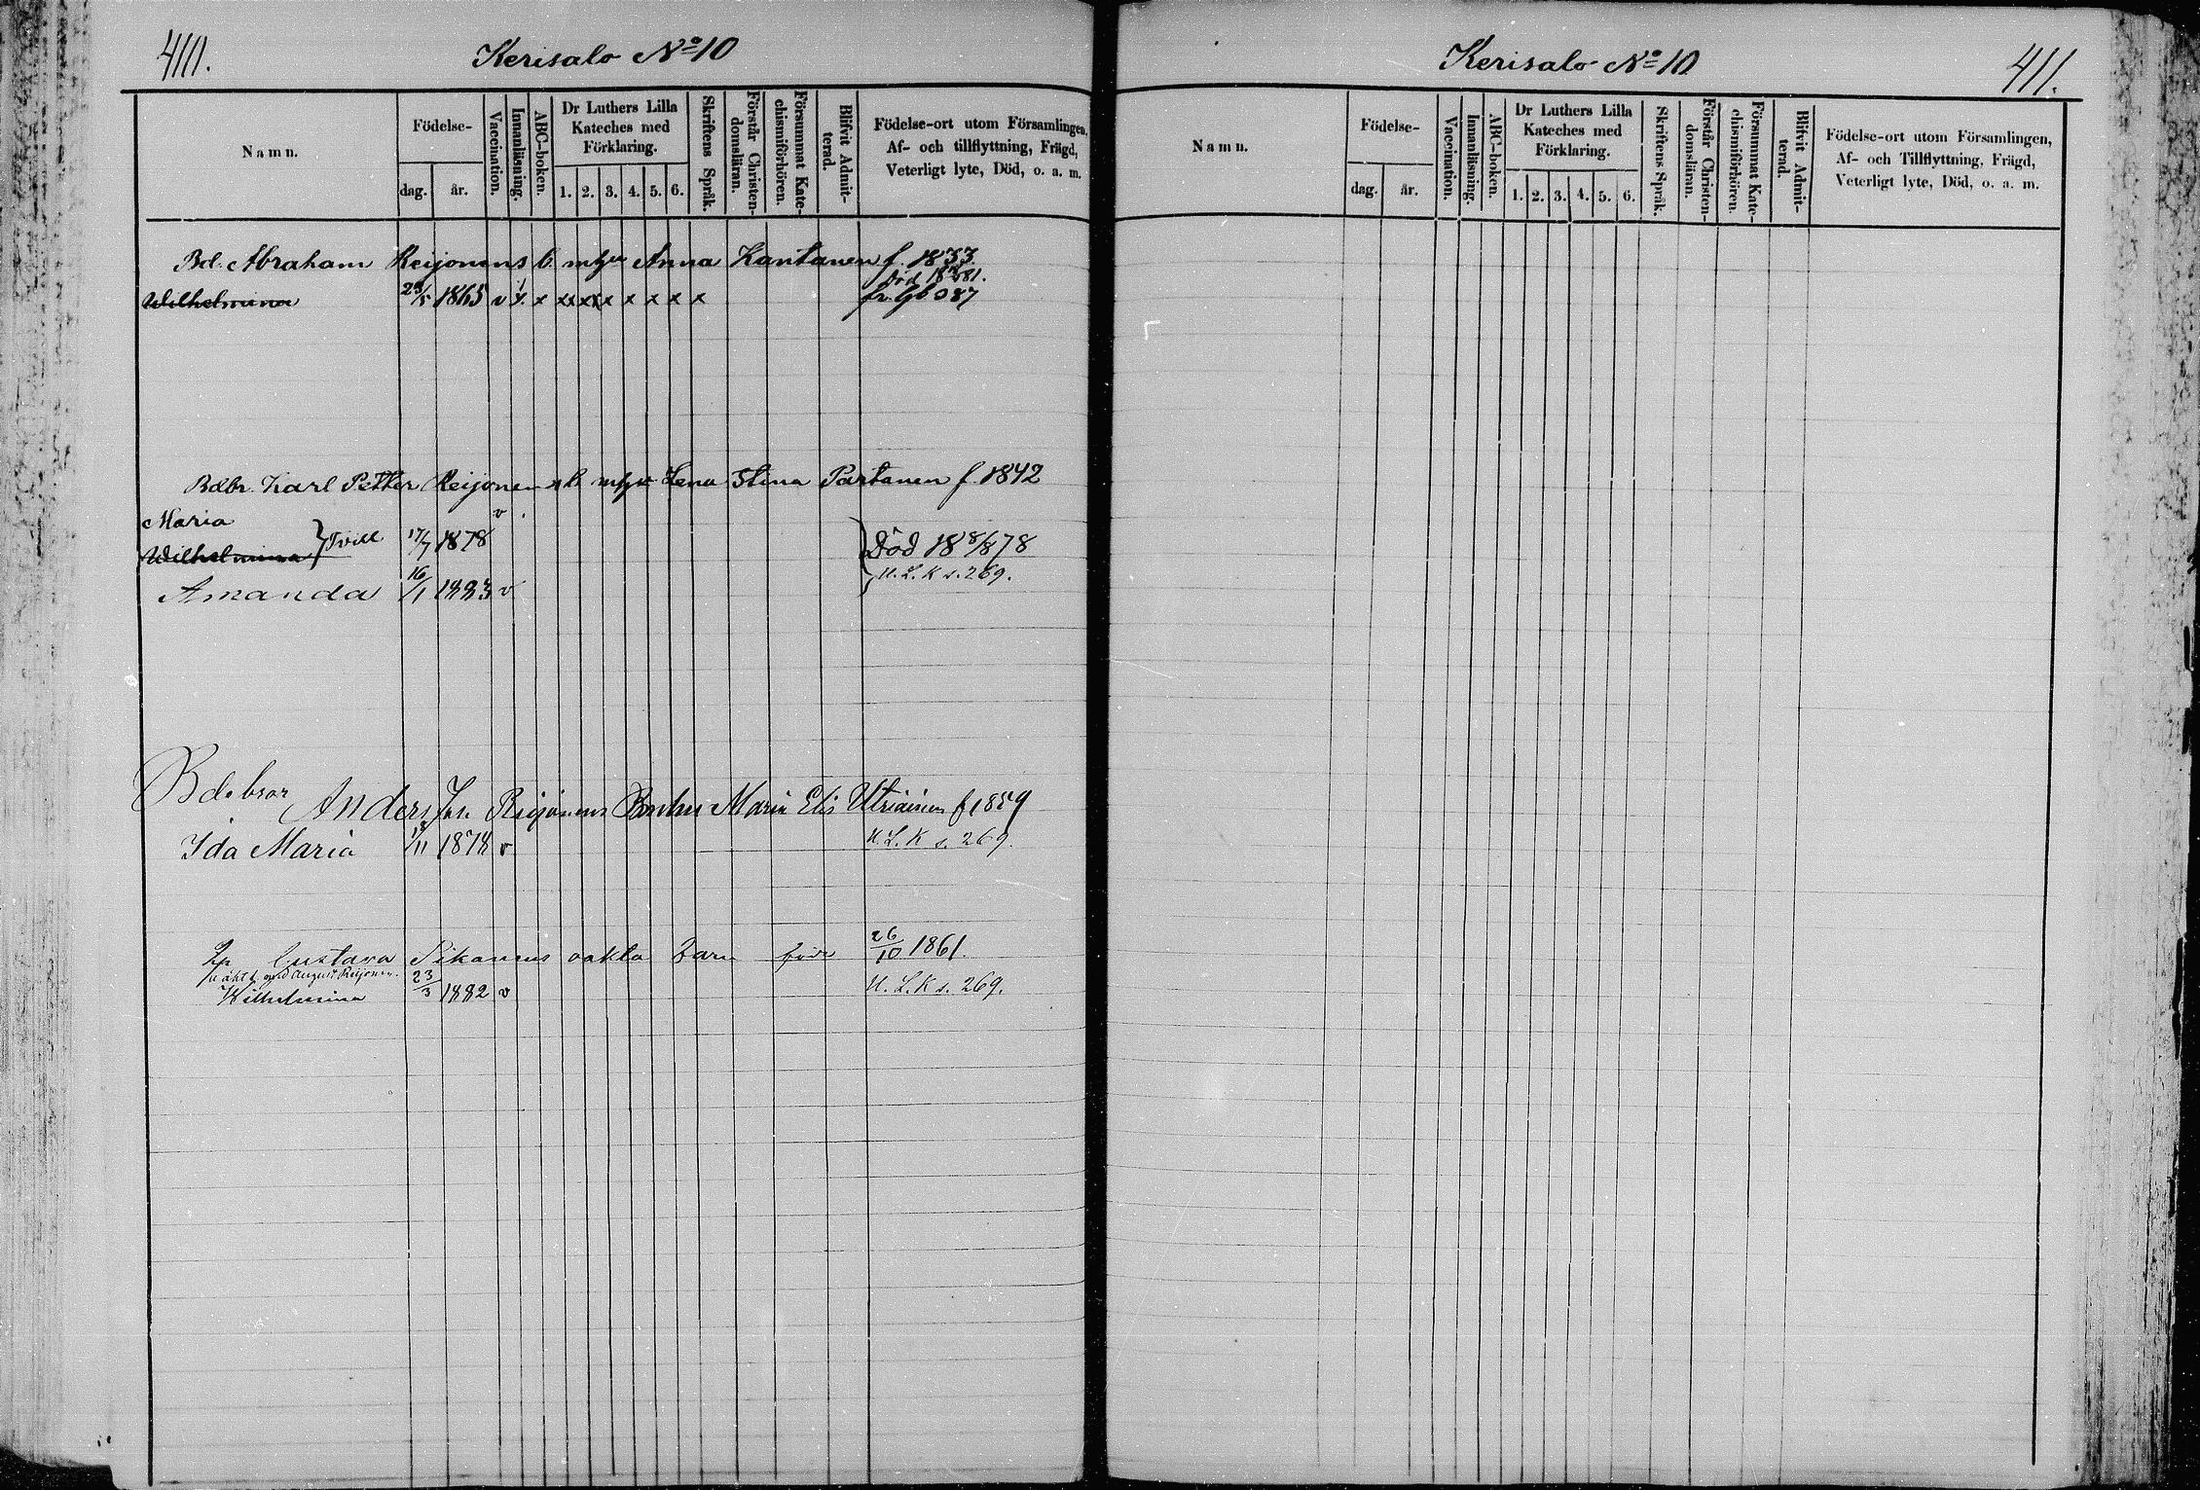 410.
Kerisalo No 10
Namn.
Födelse-
dag.
år.
Vaccination.
Innanläsning.
ABC-boken.
Dr Luthers Lilla
Kateches med
Förklaring.
1. 2. 3. 4. 5. 6.
Skriftens Språk.
Förstår Christen-
domsläran.
Försummat Kate-
chismiförhören.
Blifvit Admit-
terad.
Födelse-ort utom Församlingen,
Af- och tillflyttning, Frägd,
Veterligt lyte, Död, o. a. m.
Bd. Abraham Reijonens b. m Anna Kantanen f. 1833
Död 81.
Wilhelmina 1865 v x x x x x x x x 087
Bdbr. Karl Petter Reijonens b. m Lena Stina Partanen f. 1842
Maria v
Wilhelmina } Tvill 17/7 1878 Död 18 8/8 78
Amanda 16/1 1883 v U. L. K s. 269.
Bdebror Anders Joh. Reijonens Maria Elis Utriainen f 1859
Ida Maria /11 1878 v U. L. K s. 269.
Gustava Sikanens oäkta barn född 26/10 1861.
August Reijonen
Wilhelmina 23/3 1882 v U. L. K s. 269.
Kerisalo No 10
411.
Namn.
Födelse-
dag.
år.
Vaccination.
Innanläsning.
ABC-boken.
Dr Luthers Lilla
Kateches med
Förklaring.
1. 2. 3. 4. 5. 6.
Skriftens Språk.
Förstår Christen-
domsläran.
Försummat Kate-
chismiförhören.
Blifvit Admit-
terad.
Födelse-ort utom Församlingen,
Af- och Tillflyttning, Frägd,
Veterligt lyte, Död, o. a. m.